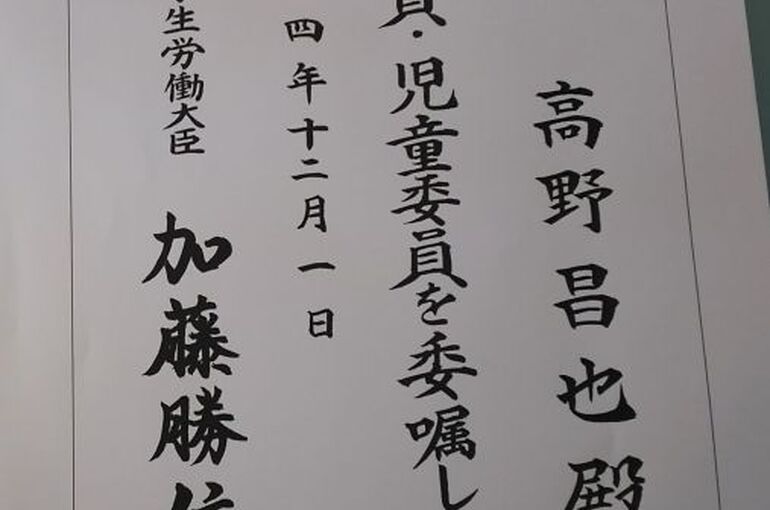 高野昌也殿
員・児童委員を委嘱し
四年十二月一日
生労働大臣
加藤勝